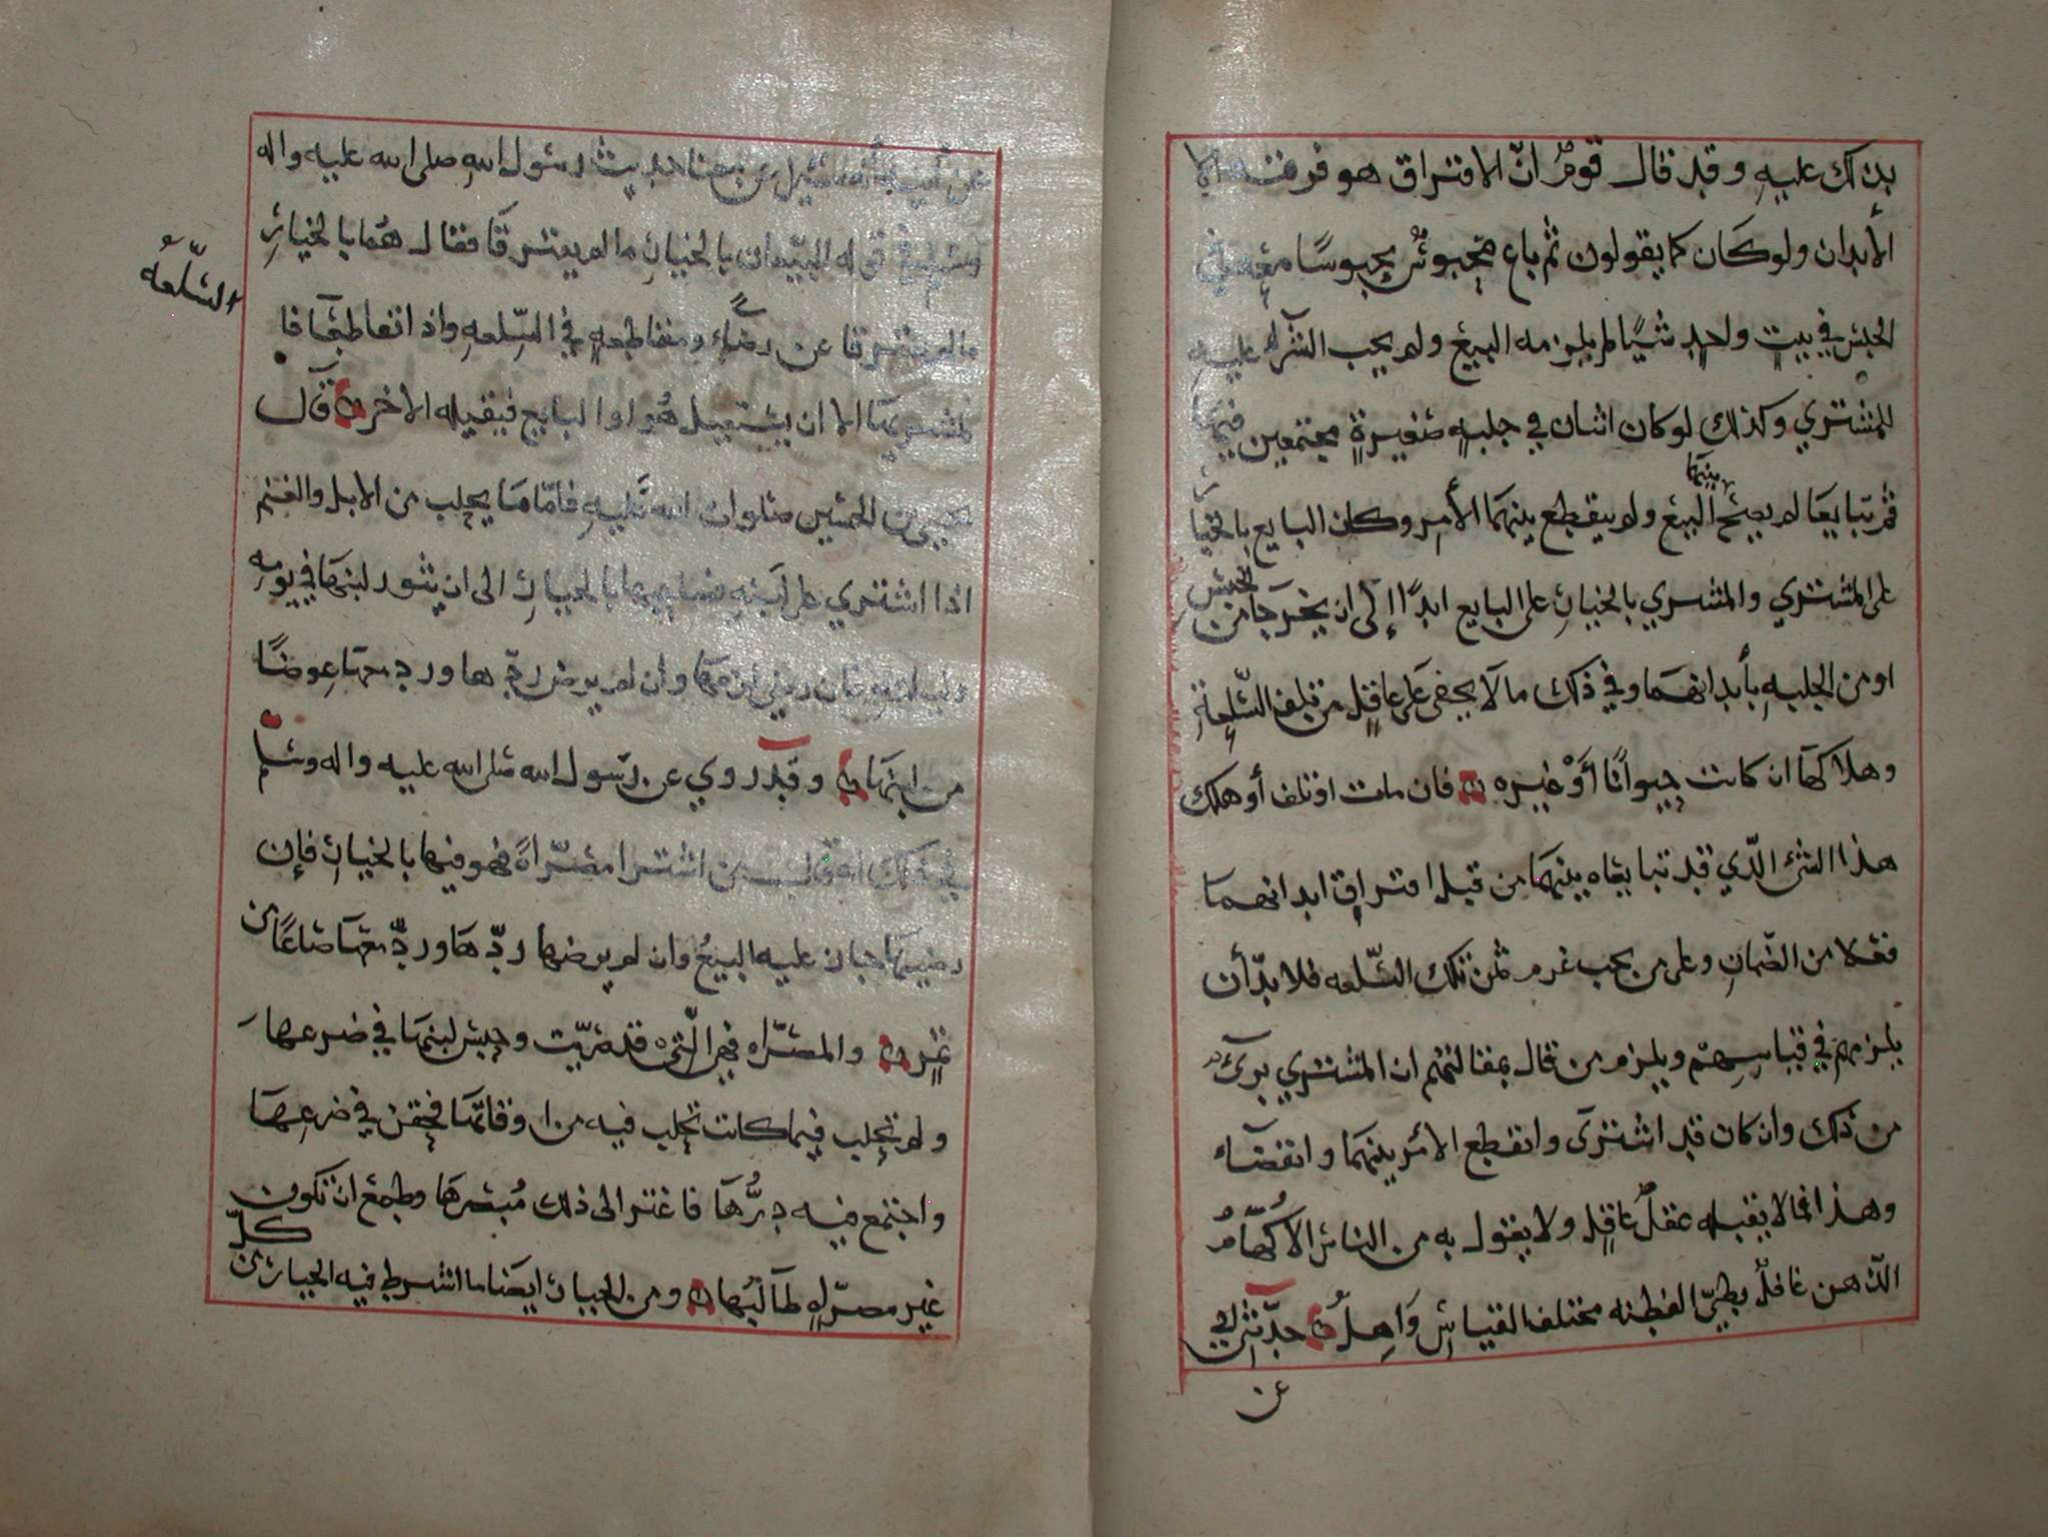 بذلك عليه وقد قال قومٌ انّ الافتراق هو فرقة الا
الأبدان ولو كان كما يقولون ثم باع محبوسٌ محبوسًا معه في
الحبس في بيتٍ واحدٍ شيًا لم يلزمه البيع ولم يجب الشرآء عليه
للمشتري وكذلك لو كان اثنان في جلبه صغيرةٍ مجتمعين فيها
ثم تبايعا لم يصح بينهما البيع ولم ينقطع بينهما الأمر وكان البايع بالخيا
على المشتري والمشتري بالخيار على البايع ابدًا إلى ان يخرجا من الحبس
او من الجلبه بأبدانهما وفي ذلك ما لا يخفى على عاقلٍ من تلف السّلعة
وهلاكها ان كانت حيوانًا أوْ غيره فان ماتت او تلف أو هلك
هذا الشئ الّذي قد تبايعاه بينهما من قبل افتراق ابدانهما
فعلا من الضمان وعلى من يجب غرم ثمن تلك السّلعه فلا بدّ أن
يلزمهم في قياسهم ويلزم من قال بمقالتهم ان المشتري برئ
من ذلك وان كان قد اشترى وانقطع الأمر بينهما وانقضاء
وهذا فما لا يقبله عقلُ عاقلٍ ولا يقول به من الناس الا كهّامُ
الذهن غافلٌ بطيّ الفطنه مختلف القياس واهلٌ حدّثني ابي
عن
عن ابيه أنه سُئل عن حديث رسول الله صلى الله عليه واله
وسلم في قوله البيّعان بالخيار ما لم يفترقا فقال هما بالخيار
ما لم يفترقا عن رضاءٍ ومقاطعةٍ في السّلعه واذا تقاطعا فا
السّلعه
لمشتريها الا ان يستقيل هُو او البايع فيقيله الاخر قال
يحيى بن الحسين صلوات الله عليه فامّا ما يجلب من الابل والغنم
اذا اشتري على لبنه فصاحبها بالخيار الى ان يثور لبنها في يومه
وليلته فان رضي لزمها وان لم يرض ردّها ورد معها عوضًا
من لبنها وقد روي عن رسول الله صلى الله عليه واله وسلم
في ذلك انه قال من اشترا مصرّاةً فهو فيها بالخيار فإن
رضيها جاز عليه البيعُ وان لم يرضها ردّها وردّ معها صاعًا من
تمرٍ والمصرّاه فهي الّتي قد صُرّيت وحبس لبنها في ضرعها
ولم تحلب فيما كانت تحلب فيه من اوقاتها فحقن في ضرعها
واجتمع فيه درُّها فاغتر الى ذلك مُبصرها وطمع ان تكون كلّ
غير مصرّاه طالبُها ومن الخيار ايضا ما اشرط فيه الخيار من